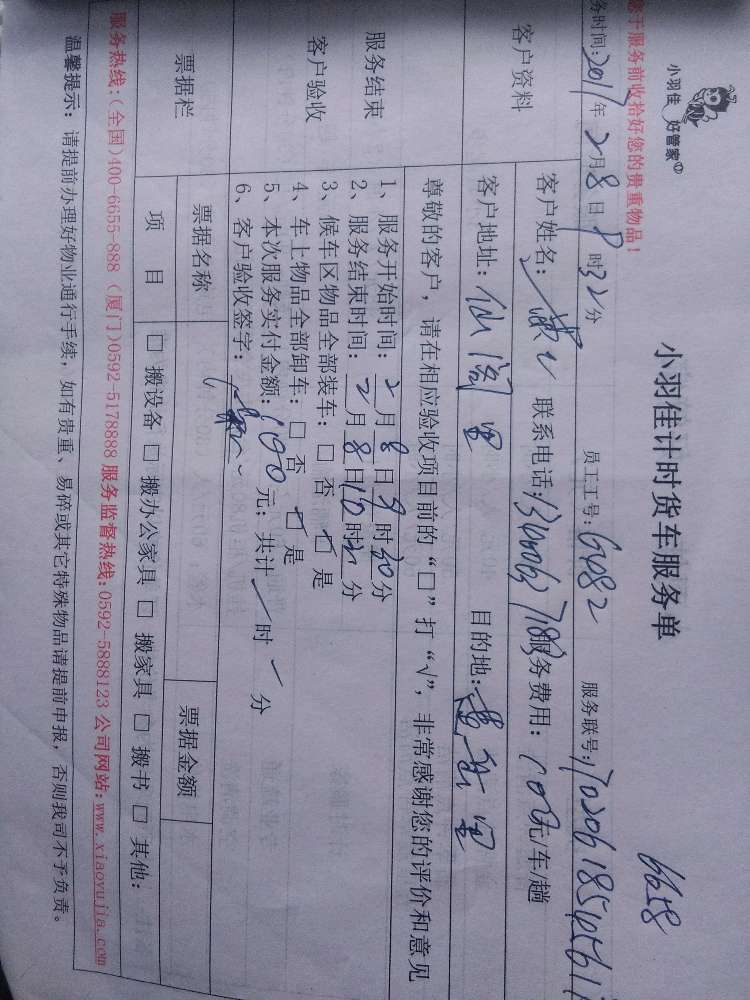 小羽佳 好管家
小羽佳计时货车服务单
6658
您于服务前收拾好您的贵重物品！
务时间：2017年2月8日9时32分 员工工号：6482 服务联号：
客户资料
客户姓名： 联系电话： 服务费用： 元/车/趟
客户地址：仙阁里 目的地：
服务结束
客户验收
尊敬的客户，请在相应验收项目前的“□”打“√”，非常感谢您的评价和意见
1、服务开始时间：2月8日9时30分
2、服务结束时间：2月8日10时30分
3、候车区物品全部装车：□ 否 □ 是
4、车上物品全部卸车：□ 否 □ 是
5、本次服务实付金额： 元；共计 时 分
6、客户验收签字：
票据栏
票据名称 票据金额
项 目 □ 搬设备 □ 搬办公家具 □ 搬家具 □ 搬书 □ 其他：
服务热线：（全国）400-6655-888（厦门）0592-5178888 服务监督热线：0592-5888123 公司网站：www.xiaoyujia.com
温馨提示：请提前办理好物业通行手续，如有贵重、易碎或其它特殊物品请提前申报，否则我司不予负责。